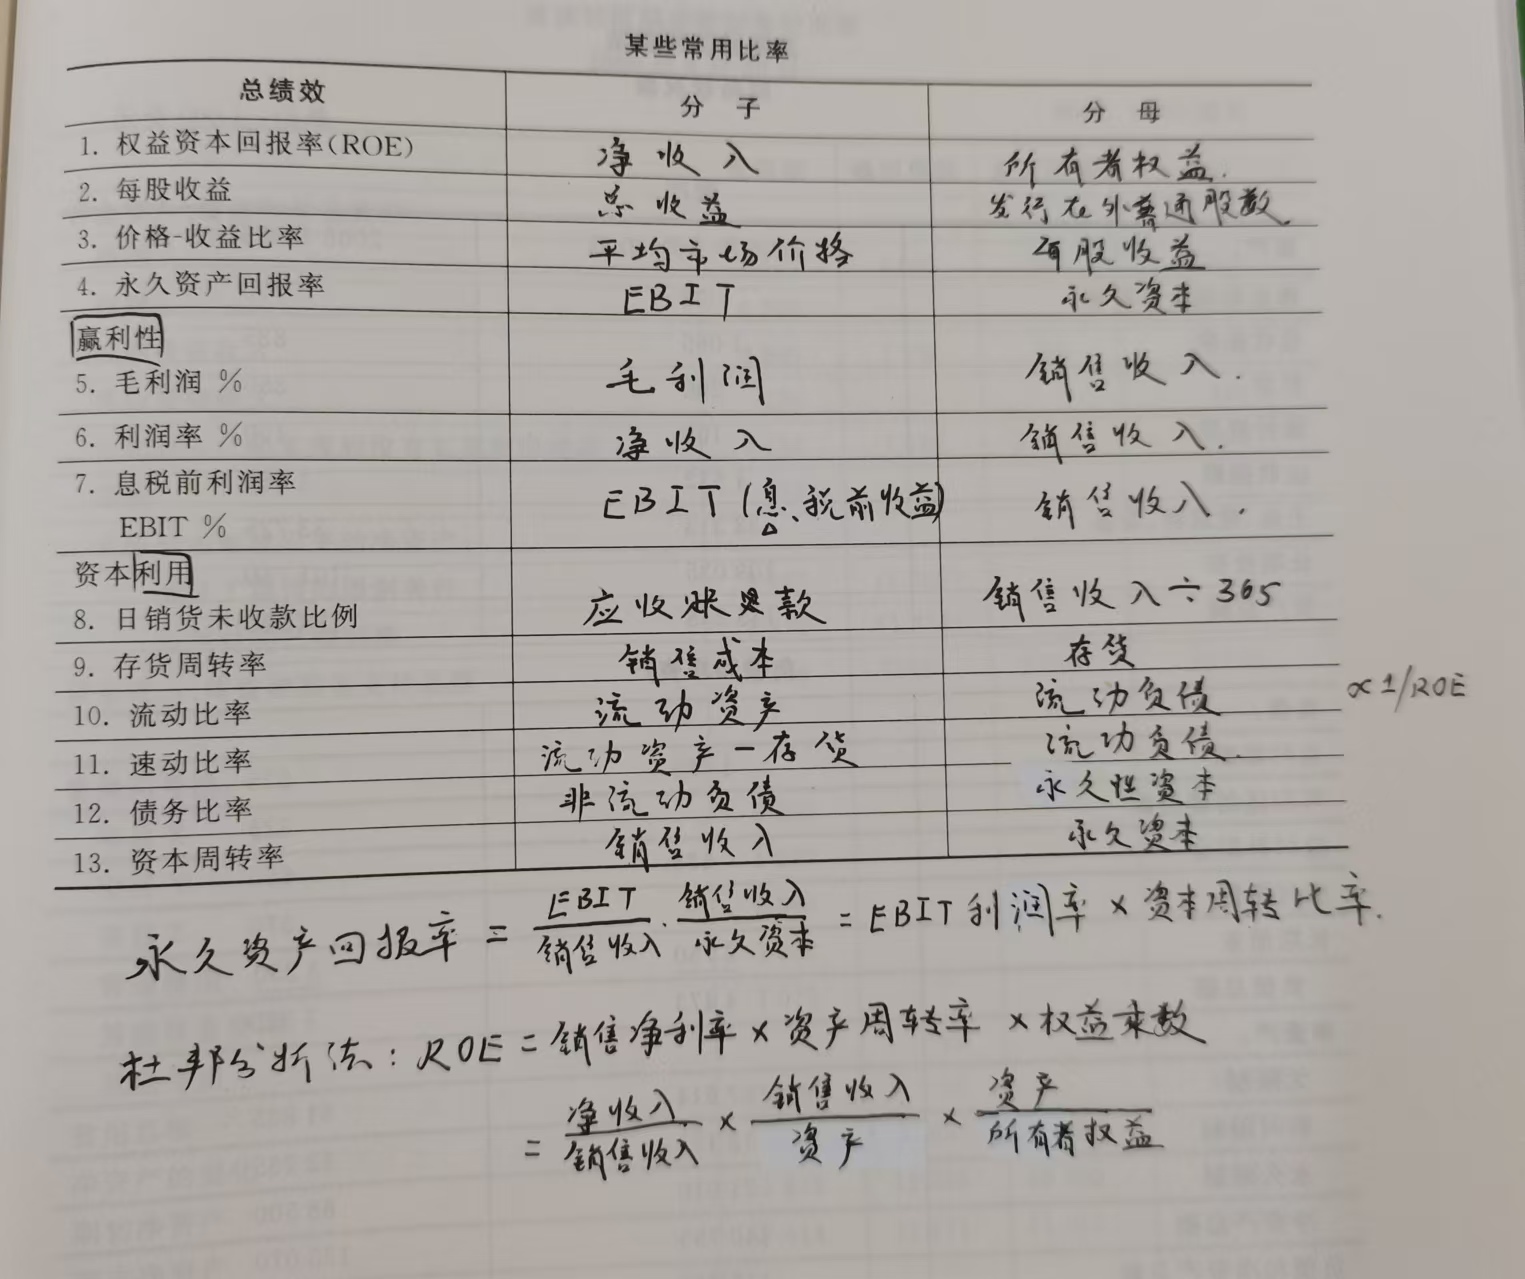 某些常用比率
总绩效 分 子 分 母
1. 权益资本回报率(ROE) 净收入 所有者权益.
2. 每股收益 总收益 发行在外普通股数.
3. 价格-收益比率 平均市场价格 每股收益
4. 永久资产回报率 EBIT 永久资本
赢利性
5. 毛利润 % 毛利润 销售收入.
6. 利润率 % 净收入 销售收入.
7. 息税前利润率 EBIT (息、税前收益) 销售收入.
EBIT %
资本利用
8. 日销货未收款比例 应收账款 销售收入÷365
9. 存货周转率 销售成本 存货
10. 流动比率 流动资产 流动负债 ∝1/ROE
11. 速动比率 流动资产-存货 流动负债.
12. 债务比率 非流动负债 永久性资本
13. 资本周转率 销售收入 永久资本
永久资产回报率 = EBIT/销售收入 · 销售收入/永久资本 = EBIT利润率 × 资本周转比率.
杜邦分析法: ROE = 销售净利率 × 资产周转率 × 权益乘数
= 净收入/销售收入 × 销售收入/资产 × 资产/所有者权益